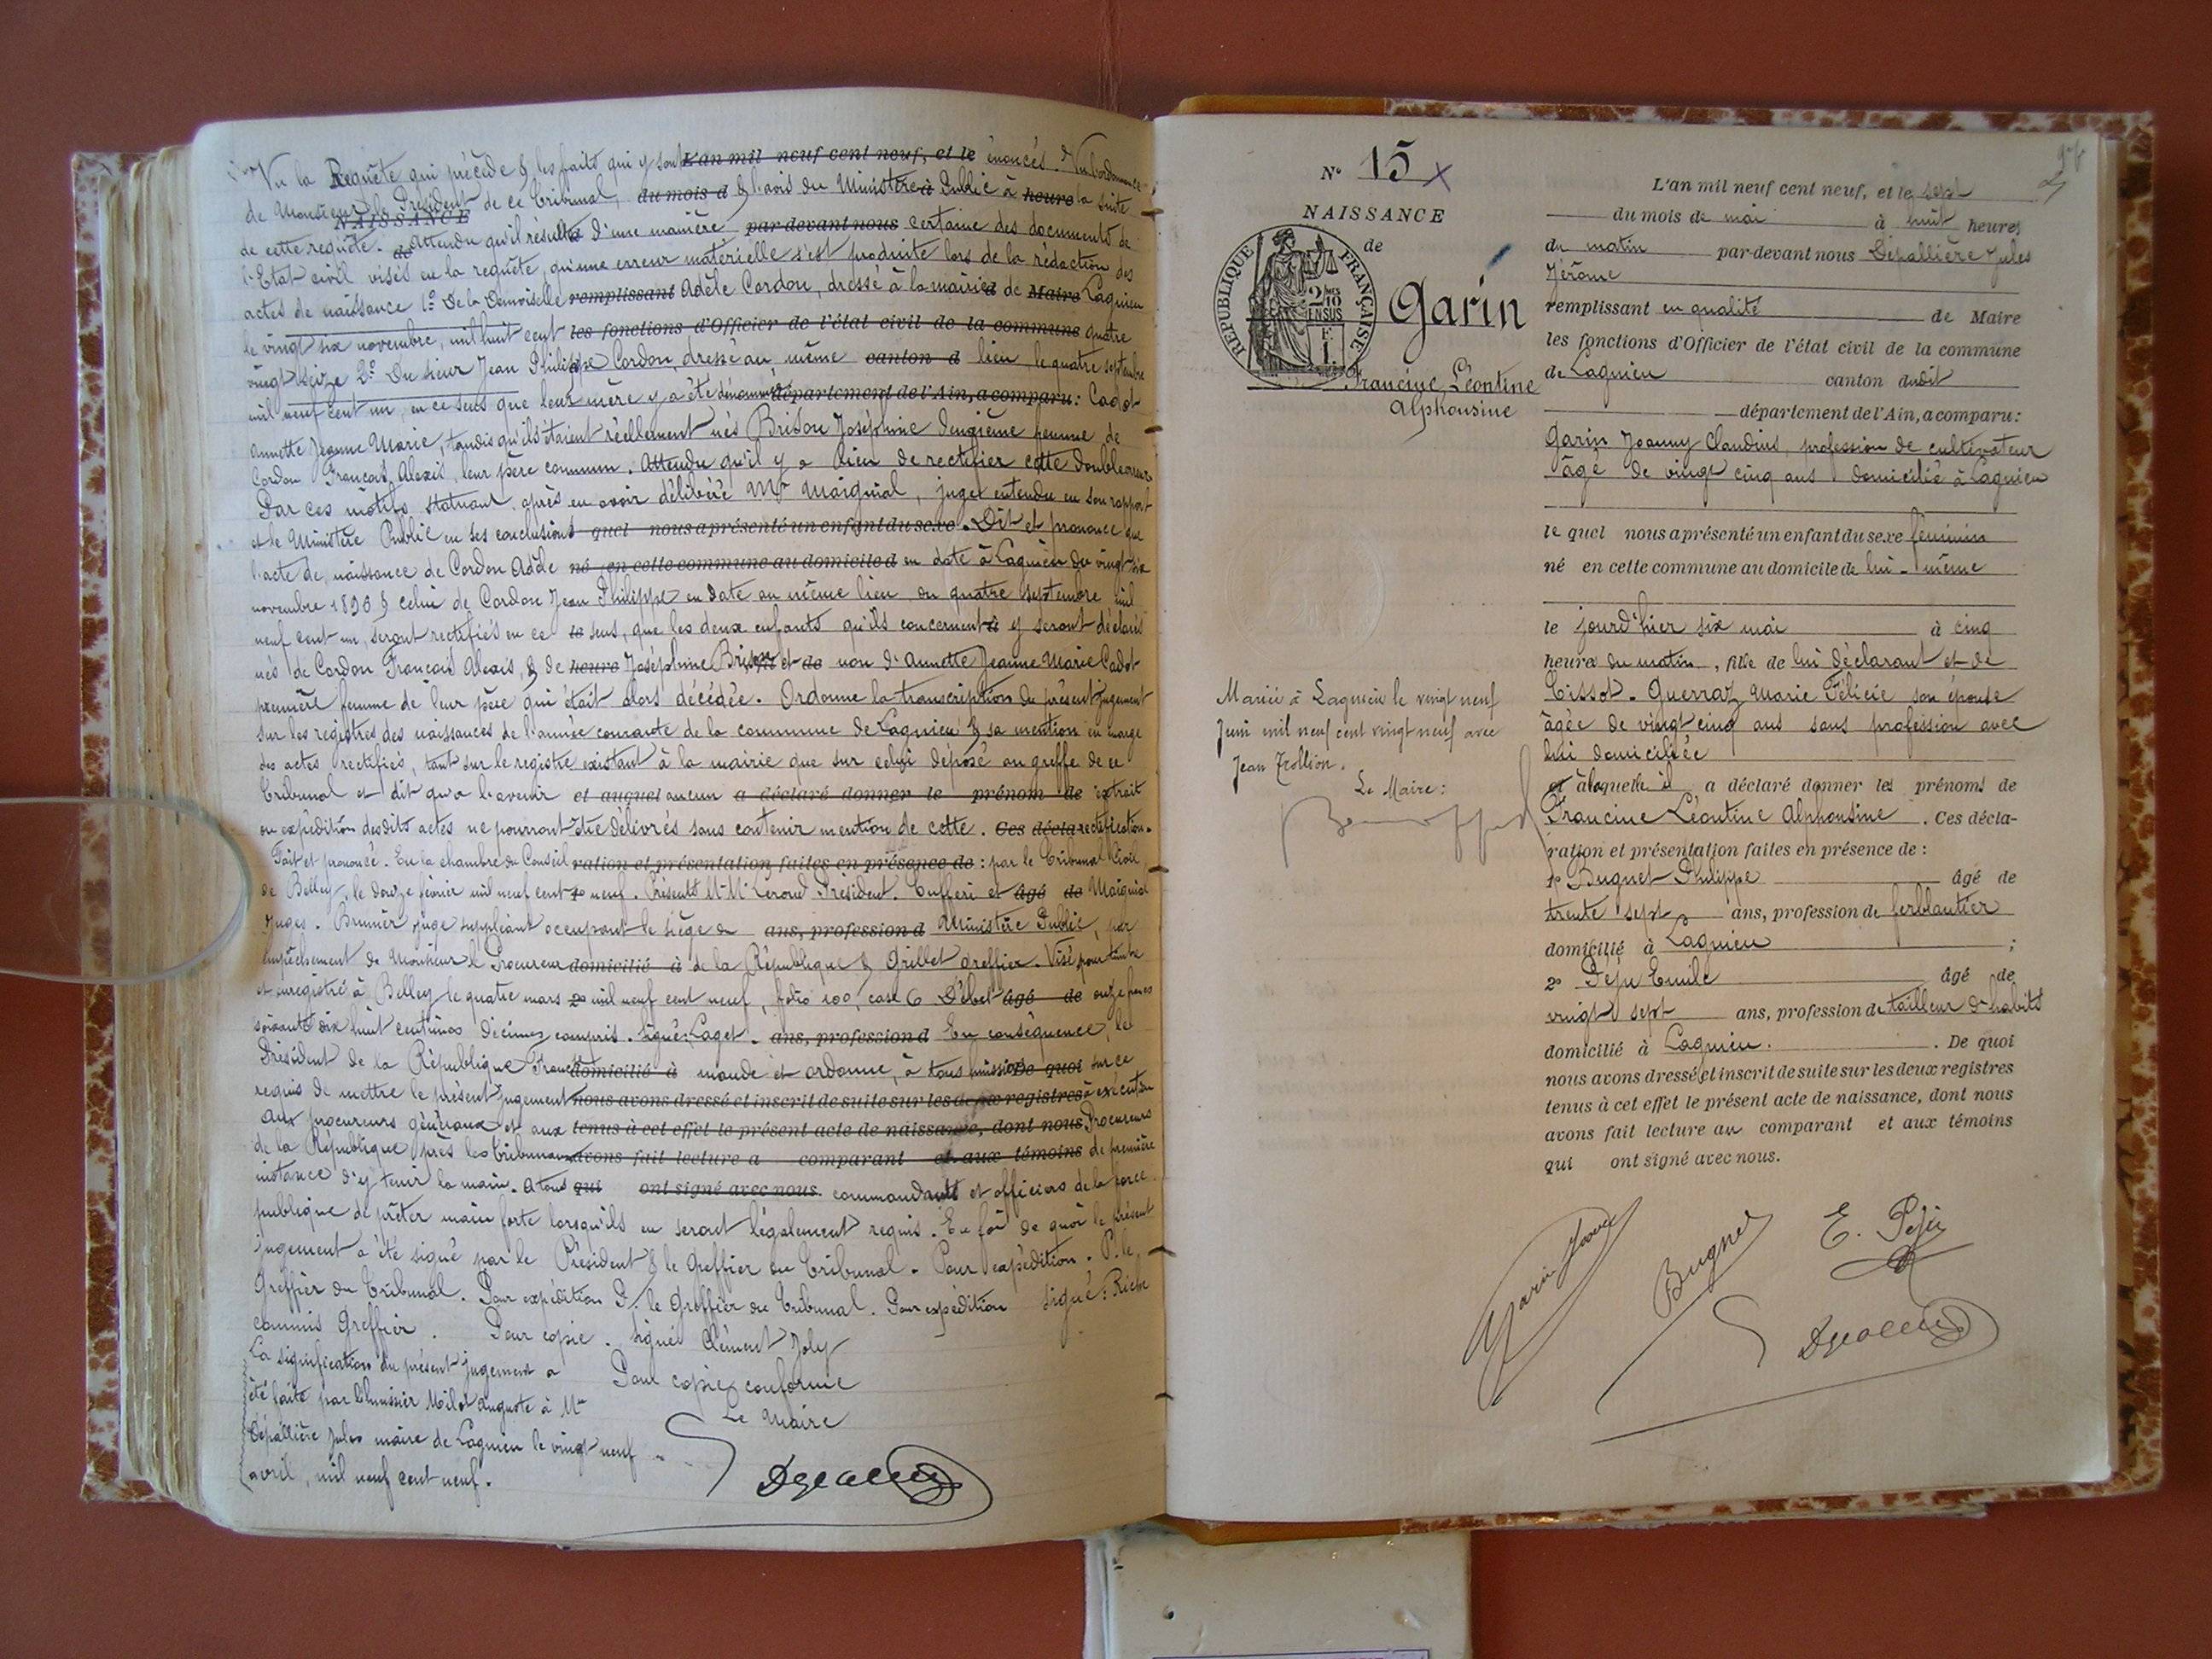 Vu la Requête qui précède & les faits qui y sont L'an mil neuf cent neuf, et le énoncés. Vu l'ordonnance
de Monsieur le Président de ce Tribunal, du mois d & l'avis du Ministère à Public à heure la suite
NAISSANCE
de cette requête. de Attendu qu'il résulte d'une manière par-devant nous certaine des documents de
l'Etat civil visés en la requête, qu'une erreur matérielle s'est produite lors de la rédaction des
actes de naissance 1º De la Demoiselle remplissant Adèle Cordon, dressé à la mairie d de Maire Lagnieu
le vingt six novembre, mil huit cent les fonctions d'Officier de l'état civil de la commune quatre
vingt seize 2º Du sieur Jean Philippe Cordon, dressé au même canton d lieu, le quatre septembre
mil neuf cent un, en ce sens que leur mère y a été dénommée département de l'Ain, a comparu: Cadot
Annette Jeanne Marie, tandis qu'ils étaient réellement nés Brison Joséphine deuxième femme de
Cordon François Alexis, leur père commun. Attendu qu'il y a lieu de rectifier cette double erreur
Par ces motifs, statuant après en avoir délibéré Mr Maignial, juge entendu en son rapport
et le Ministère Public en ses conclusions quel nous a présenté un enfant du sexe. Dit et prononce que
l'acte de naissance de Cordon Adèle né en cette commune au domicile d en date à Lagnieu du vingt-six
novembre 1896 & celui de Cordon Jean Philippe en date au même lieu du quatre septembre mil
neuf cent un, seront rectifiés en ce le sens, que les deux enfants qu'ils concernent à y seront déclarés
nés de Cordon François Alexis, & de heure Joséphine Brison et de non d'Annette Jeanne Marie Cadot
première femme de leur père qui était alors décédée. Ordonne la transcription du présent jugement
sur les registres des naissances de l'année courante de la commune de Lagnieu & sa mention en marge
des actes rectifiés, tant sur le registre existant à la mairie que sur celui déposé au greffe de ce
Tribunal et dit qu'à l'avenir et auquel aucun a déclaré donner le prénom de extrait
ou expédition desdits actes ne pourront être délivrés sans contenir mention de cette. Ces décla rectification.
Fait et prononcé. En la chambre du Conseil ration et présentation faites en présence de: par le Tribunal Civil
de Belley, le douze février mil neuf cent 1º neuf. Présents Mr Mr Leroud Président. Cufferi et âgé de Maignial
Juges. Brunier juge suppléant occupant le siège du ans, profession d Ministère Public, par
empêchement de Monsieur le Procureur domicilié à de la République & Grillet greffier. Visé pour timbre
et enregistré à Belley le quatre mars 2º mil neuf cent neuf, folio 100, case 6 Débet âgé de onze francs
soixante dix huit centimes décimes compris. Signé: Laget. ans, profession d En conséquence, le
Président de la République Franc domicilié à mande et ordonne, à tous huissiers De quoi sur ce
requis de mettre le présent jugement nous avons dressé et inscrit de suite sur les deux registres à exécution
Aux procureurs généraux et aux tenus à cet effet le présent acte de naissance, dont nous Procureurs
de la République près les Tribunaux avons fait lecture a comparant et aux témoins de première
instance d'y tenir la main. A tous qui ont signé avec nous. commandants et officiers de la force
publique de prêter main forte lorsqu'ils en seront légalement requis. En foi de quoi le présent
jugement a été signé par le Président & le Greffier du Tribunal. Pour expédition. P. le
Greffier du Tribunal. Pour expédition P. le Greffier du Tribunal. Pour expédition signé: Riche
commis Greffier. Pour copie. Signé Clément Joly
La signification du présent jugement a
été faite par l'huissier Milot Auguste à Mr
Dépallière Jules maire de Lagnieu le vingt neuf
avril, mil neuf cent neuf.
Pour copie conforme
Le Maire
Nº 15
NAISSANCE
de
RÉPUBLIQUE FRANÇAISE
Garin
Francine Léontine
Alphonsine
Mariée à Lagnieu le vingt neuf
Juin mil neuf cent vingt neuf avec
Jean Trollion.
Le Maire:
L'an mil neuf cent neuf, et le sept
du mois de mai à huit heures
du matin par-devant nous Dépallière Jules
Jérôme
remplissant en qualité de Maire
les fonctions d'Officier de l'état civil de la commune
de Lagnieu canton dudit
département de l'Ain, a comparu:
Garin Joanny Claudius, profession de cultivateur
âgé de vingt cinq ans domicilié à Lagnieu
le quel nous a présenté un enfant du sexe féminin
né en cette commune au domicile de lui-même
le jourd'hier six mai à cinq
heures du matin, fille de lui déclarant et de
Tissot-Guerraz Marie Félicie son épouse
âgée de vingt cinq ans sans profession avec
lui domiciliée
et à laquelle il a déclaré donner les prénoms de
Francine Léontine Alphonsine. Ces décla-
ration et présentation faites en présence de:
1º Bugnet Philippe âgé de
trente sept ans, profession de ferblantier
domicilié à Lagnieu;
2º Péju Emile âgé de
vingt sept ans, profession de tailleur d'habits
domicilié à Lagnieu. De quoi
nous avons dressé et inscrit de suite sur les deux registres
tenus à cet effet le présent acte de naissance, dont nous
avons fait lecture au comparant et aux témoins
qui ont signé avec nous.
Garin
Bugnet
E. Péju